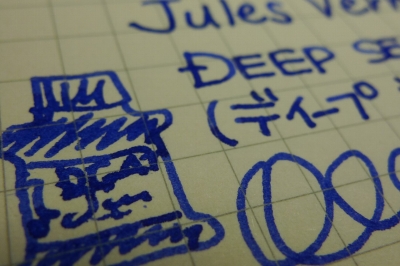 Jules Ver
DEEP SE
(ディープ